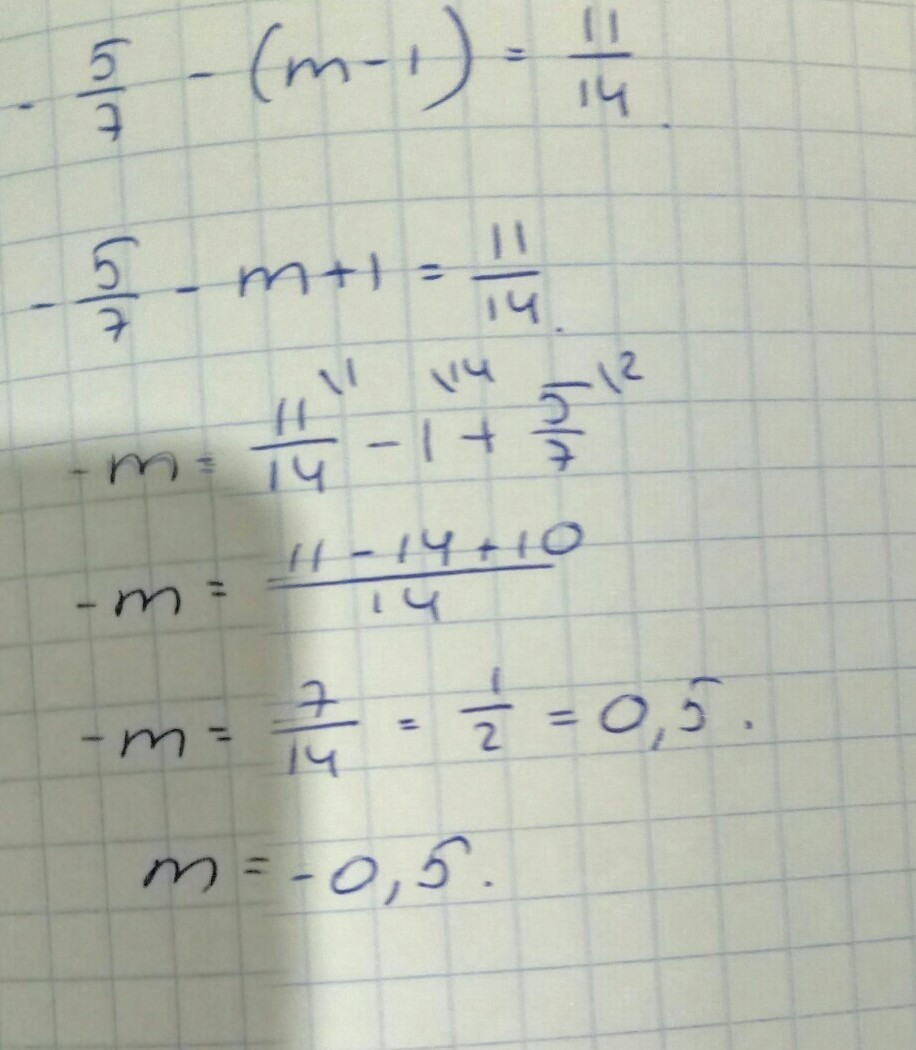 - 5/7 - (m-1) = 11/14.
- 5/7 - m+1 = 11/14.
-m = 11/14 \1 - 1 \14 + 5/7 \2
-m = 11-14+10/14
-m = 7/14 = 1/2 = 0,5.
m = -0,5.